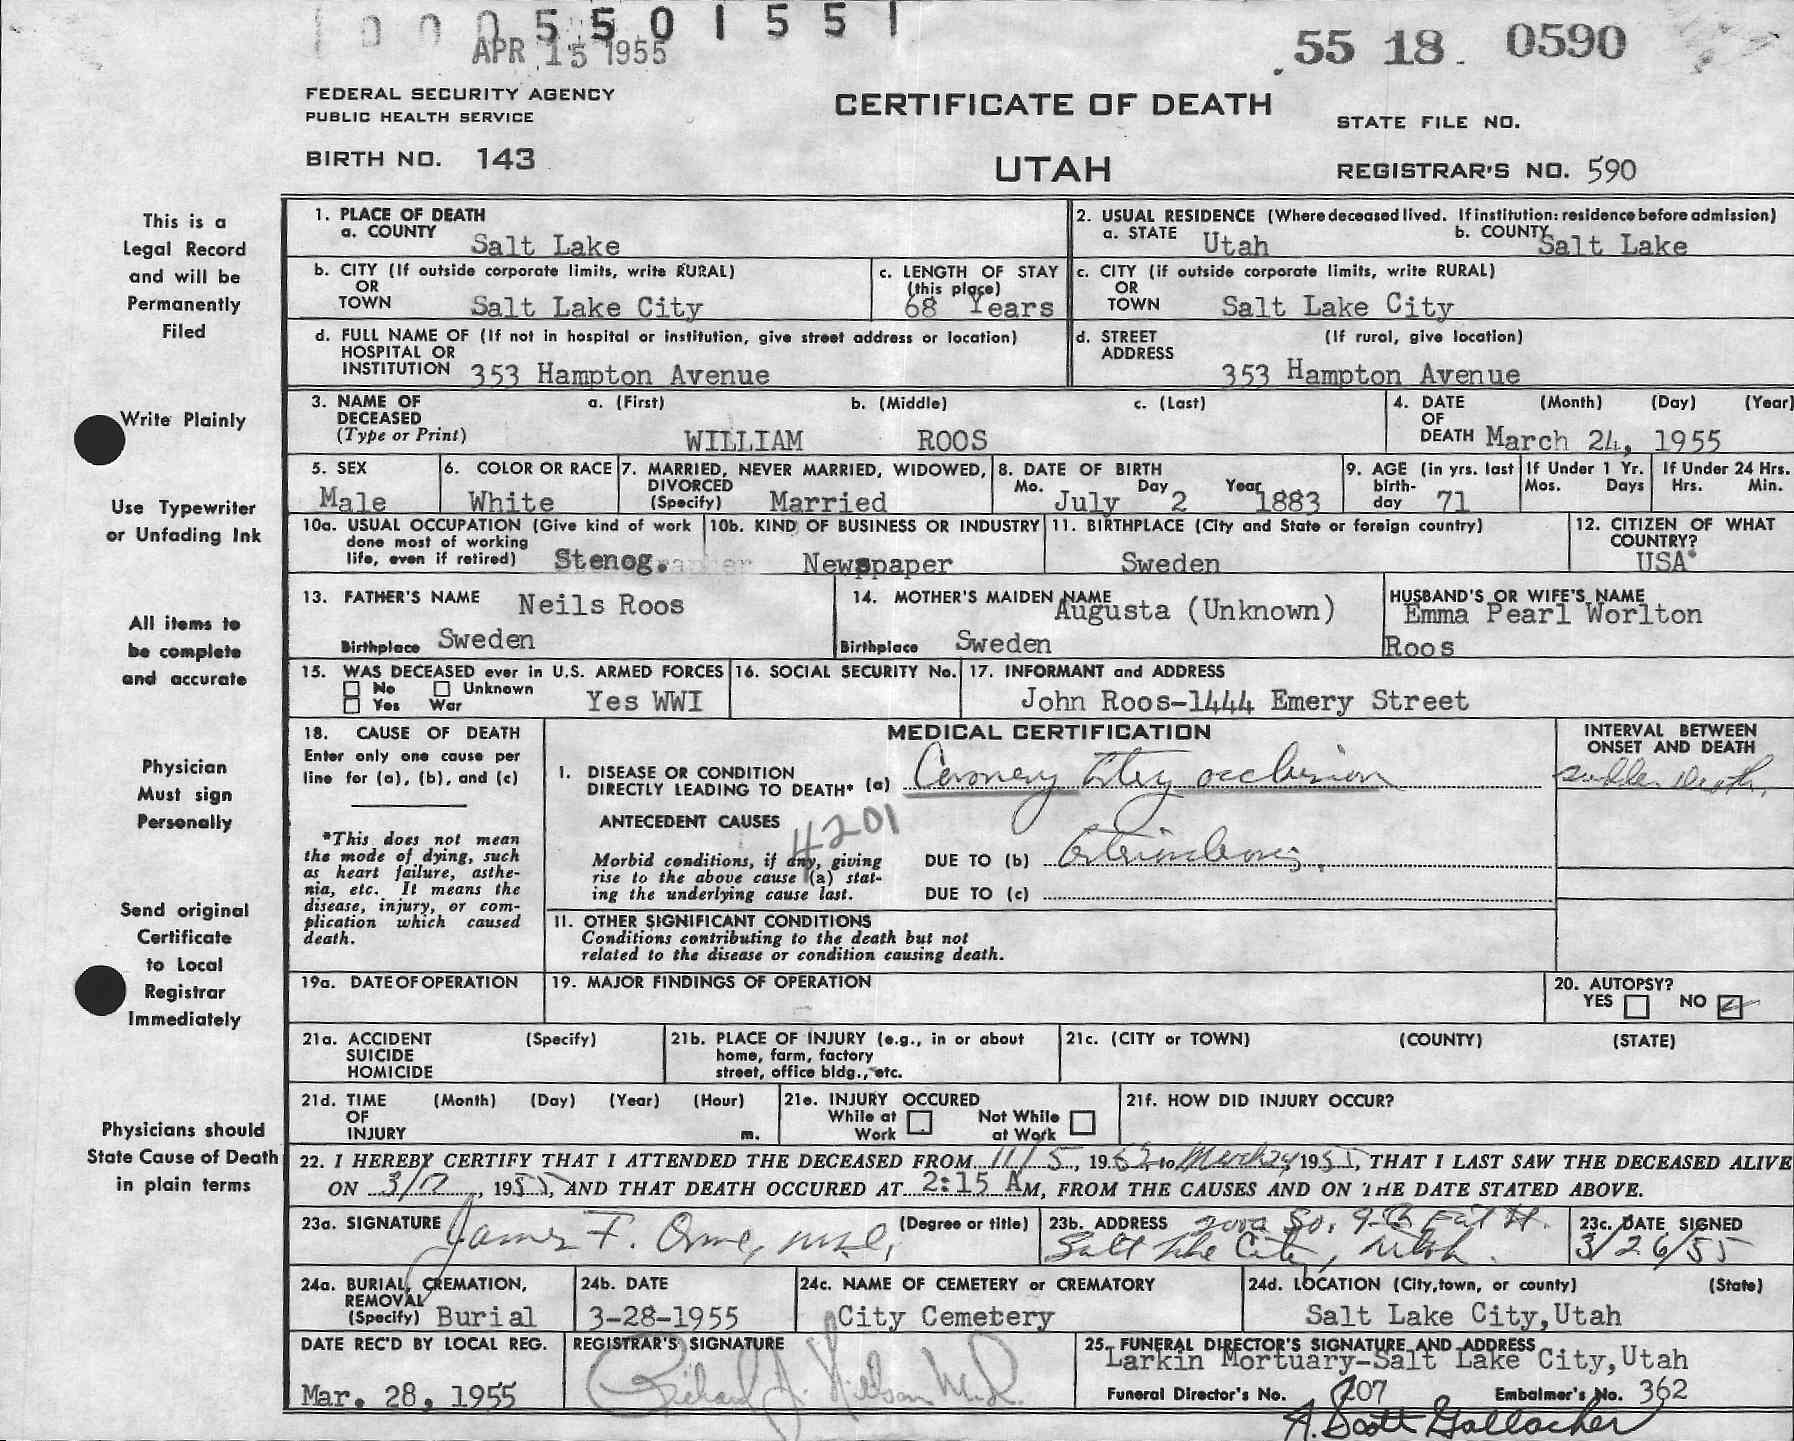 1 0 0 0 5 5 0 1 5 5 1
APR 15 1955
55 18 0590
FEDERAL SECURITY AGENCY
PUBLIC HEALTH SERVICE
CERTIFICATE OF DEATH
STATE FILE NO.
BIRTH NO. 143
UTAH
REGISTRAR'S NO. 590
This is a
Legal Record
and will be
Permanently
Filed
Write Plainly
Use Typewriter
or Unfading Ink
All items to
be complete
and accurate
Physician
Must sign
Personally
Send original
Certificate
to Local
Registrar
Immediately
Physicians should
State Cause of Death
in plain terms
1. PLACE OF DEATH
a. COUNTY Salt Lake
2. USUAL RESIDENCE (Where deceased lived. If institution: residence before admission)
a. STATE Utah b. COUNTY Salt Lake
b. CITY (If outside corporate limits, write RURAL)
OR
TOWN Salt Lake City
c. LENGTH OF STAY
(this place)
68 Years
c. CITY (if outside corporate limits, write RURAL)
OR
TOWN Salt Lake City
d. FULL NAME OF (If not in hospital or institution, give street address or location)
HOSPITAL OR
INSTITUTION 353 Hampton Avenue
d. STREET (If rural, give location)
ADDRESS
353 Hampton Avenue
3. NAME OF a. (First) b. (Middle) c. (Last)
DECEASED
(Type or Print) WILLIAM ROOS
4. DATE (Month) (Day) (Year)
OF
DEATH March 24, 1955
5. SEX
Male
6. COLOR OR RACE
White
7. MARRIED, NEVER MARRIED, WIDOWED,
DIVORCED
(Specify) Married
8. DATE OF BIRTH
Mo. Day Year
July 2 1883
9. AGE (in yrs. last
birth-
day 71
If Under 1 Yr.
Mos. Days
If Under 24 Hrs.
Hrs. Min.
10a. USUAL OCCUPATION (Give kind of work
done most of working
life, even if retired) Stenog.
10b. KIND OF BUSINESS OR INDUSTRY
Newspaper
11. BIRTHPLACE (City and State or foreign country)
Sweden
12. CITIZEN OF WHAT
COUNTRY?
USA
13. FATHER'S NAME Neils Roos
Birthplace Sweden
14. MOTHER'S MAIDEN NAME
Augusta (Unknown)
Birthplace Sweden
HUSBAND'S OR WIFE'S NAME
Emma Pearl Worlton
Roos
15. WAS DECEASED ever in U.S. ARMED FORCES
No Unknown
Yes War Yes WWI
16. SOCIAL SECURITY No.
17. INFORMANT and ADDRESS
John Roos-1444 Emery Street
18. CAUSE OF DEATH
Enter only one cause per
line for (a), (b), and (c)
*This does not mean
the mode of dying, such
as heart failure, asthe-
nia, etc. It means the
disease, injury, or com-
plication which caused
death.
MEDICAL CERTIFICATION
INTERVAL BETWEEN
ONSET AND DEATH
I. DISEASE OR CONDITION
DIRECTLY LEADING TO DEATH* (a) Coronary Artery occlusion
Sudden Death.
ANTECEDENT CAUSES
4201
Morbid conditions, if any, giving
rise to the above cause (a) stat-
ing the underlying cause last.
DUE TO (b)
DUE TO (c)
II. OTHER SIGNIFICANT CONDITIONS
Conditions contributing to the death but not
related to the disease or condition causing death.
19a. DATE OF OPERATION
19. MAJOR FINDINGS OF OPERATION
20. AUTOPSY?
YES NO
21a. ACCIDENT (Specify)
SUICIDE
HOMICIDE
21b. PLACE OF INJURY (e.g., in or about
home, farm, factory
street, office bldg., etc.
21c. (CITY or TOWN) (COUNTY) (STATE)
21d. TIME (Month) (Day) (Year) (Hour)
OF
INJURY m.
21e. INJURY OCCURED
While at Work
Not While at Work
21f. HOW DID INJURY OCCUR?
22. I HEREBY CERTIFY THAT I ATTENDED THE DECEASED FROM 11/5, 1952 to March 24, 1955, THAT I LAST SAW THE DECEASED ALIVE
ON 3/17, 1955, AND THAT DEATH OCCURED AT 2:15 AM, FROM THE CAUSES AND ON THE DATE STATED ABOVE.
23a. SIGNATURE James F. Orme, M.D. (Degree or title)
23b. ADDRESS 2000 So. 9th East St.
Salt Lake City, Utah.
23c. DATE SIGNED
3/26/55
24a. BURIAL, CREMATION,
REMOVAL
(Specify) Burial
24b. DATE
3-28-1955
24c. NAME OF CEMETERY or CREMATORY
City Cemetery
24d. LOCATION (City, town, or county) (State)
Salt Lake City, Utah
DATE REC'D BY LOCAL REG.
Mar. 28, 1955
REGISTRAR'S SIGNATURE
Richard J. Nielson M.D.
25. FUNERAL DIRECTOR'S SIGNATURE AND ADDRESS
Larkin Mortuary-Salt Lake City, Utah
Funeral Director's No. 207 Embalmer's No. 362
A. Scott Gallacher